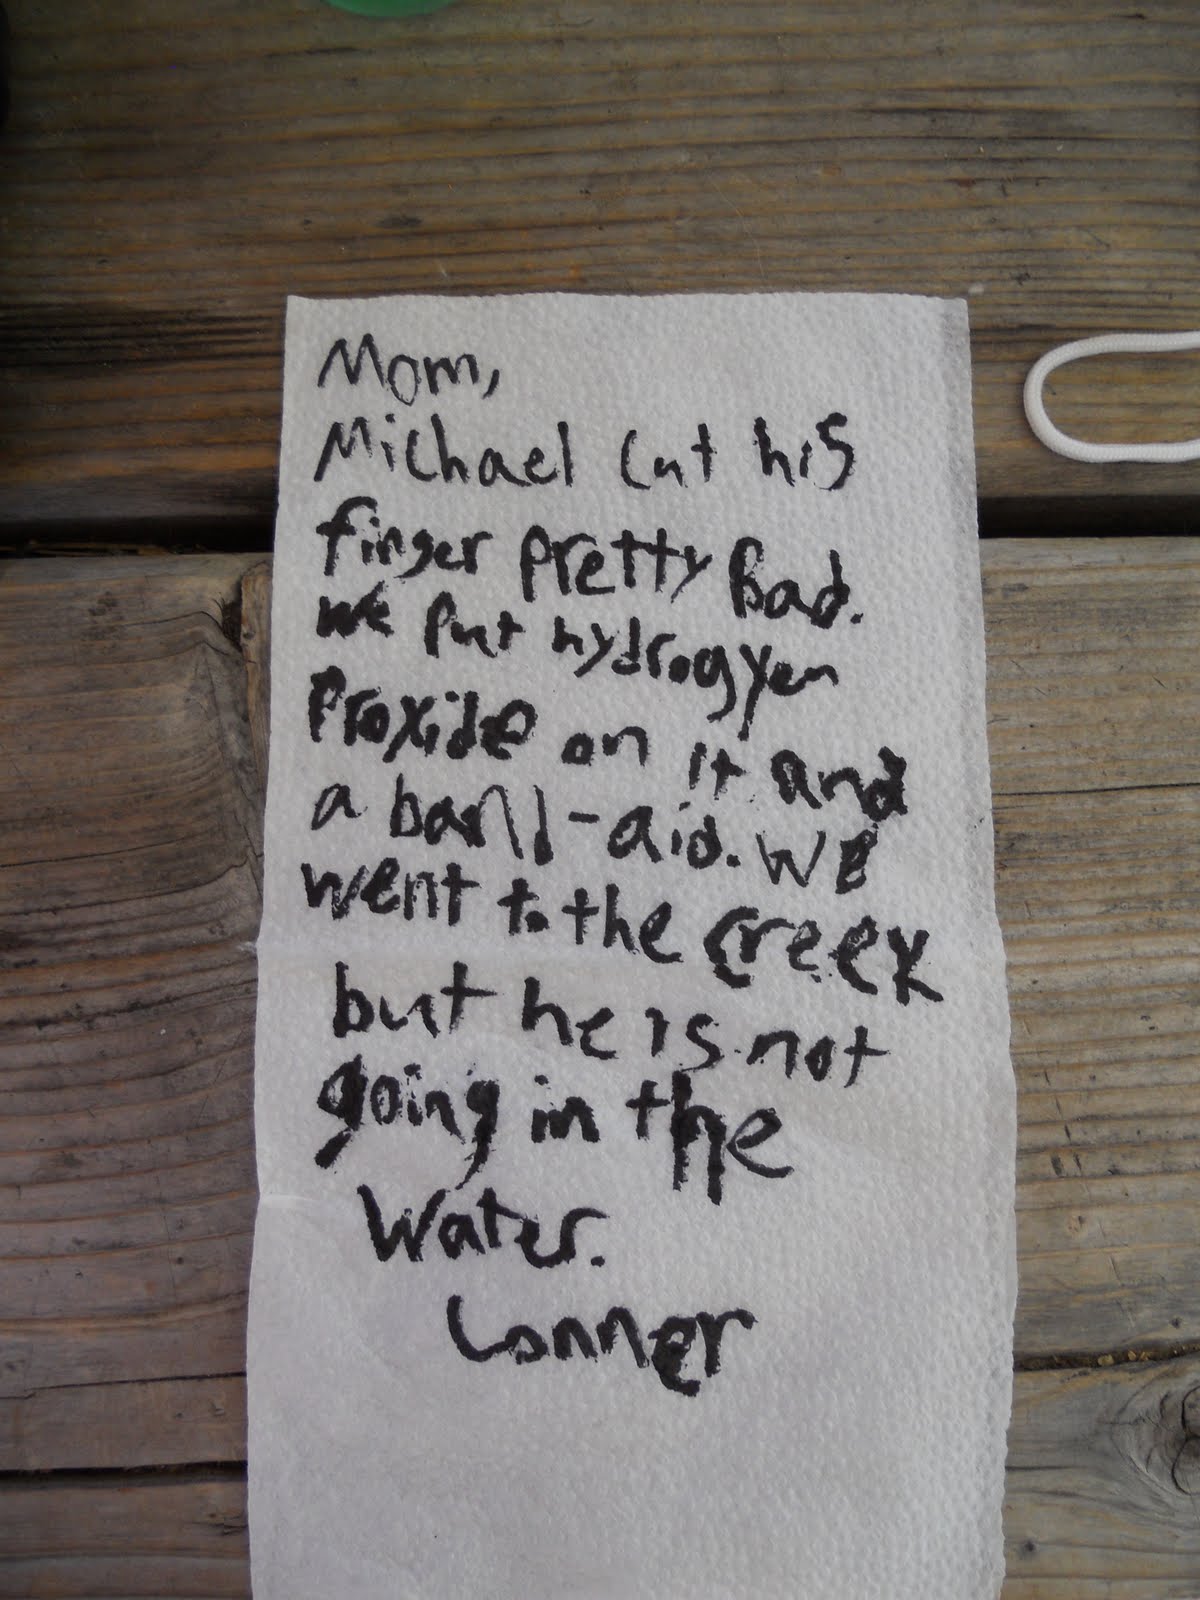 Mom,
Michael cut his
finger pretty Bad.
we put hydrogyen
Proxide on it and
a band-aid. WE
went to the creek
but he is not
going in the
Water.
Conner